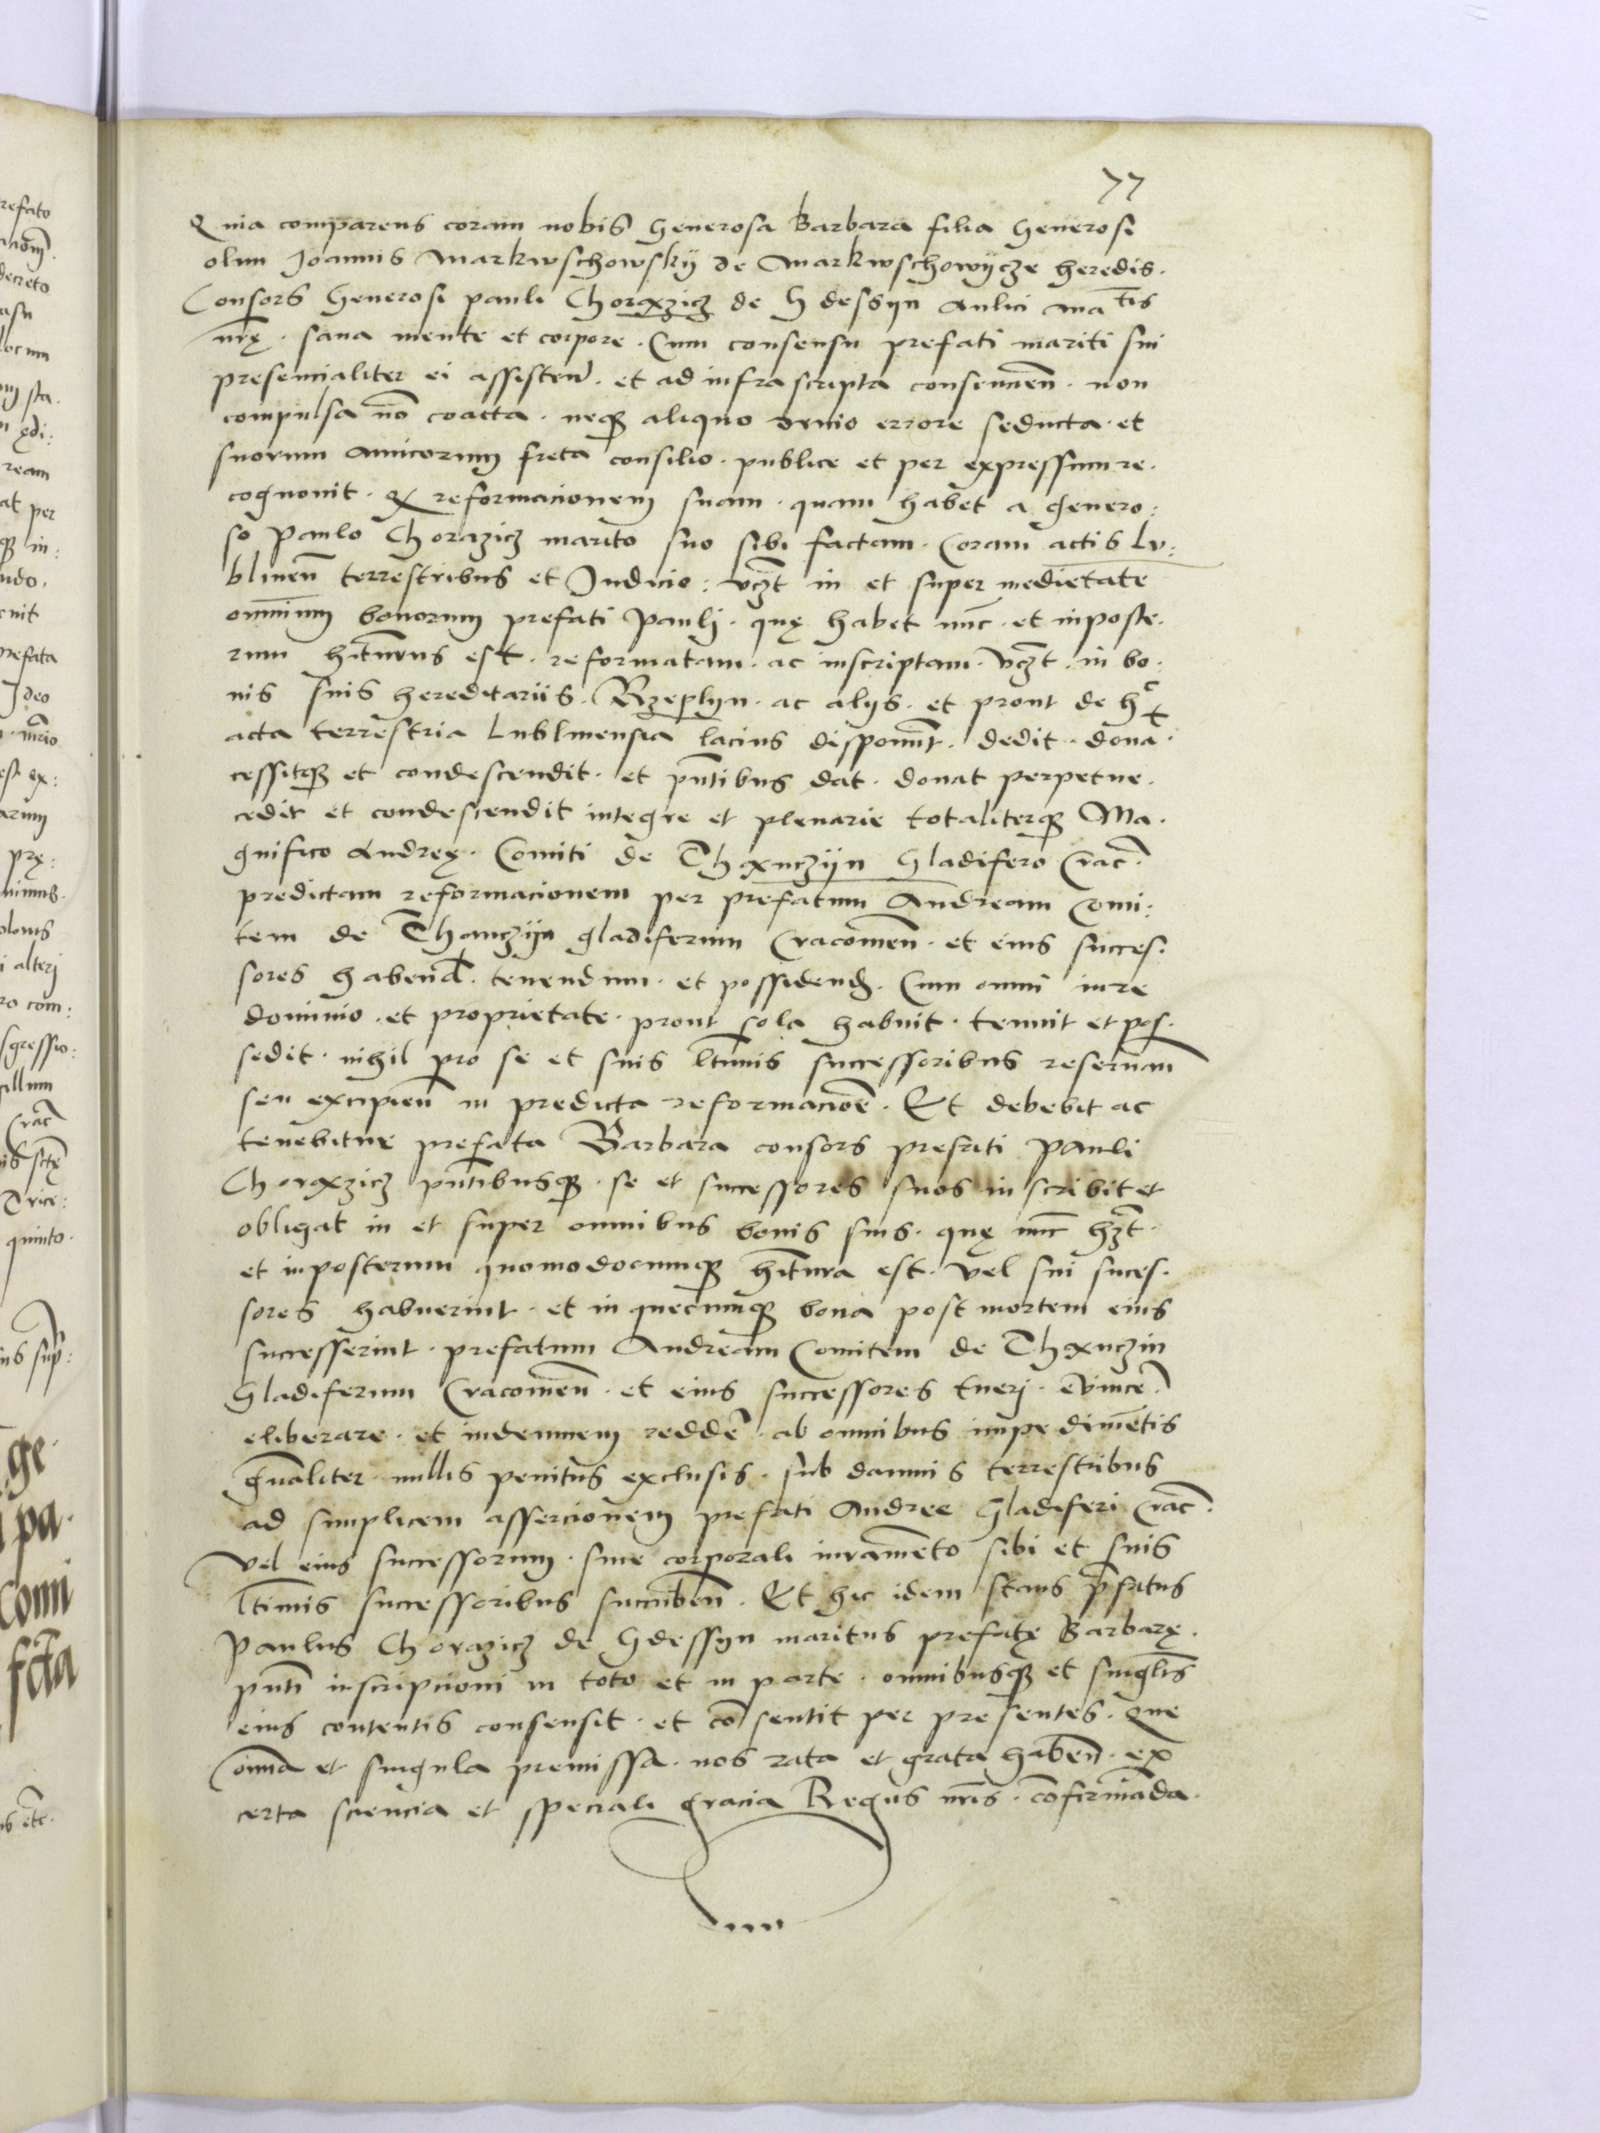 77
Quia comparens coram nobis Generosa Barbara filia Generosi
olim Joannis Markwschowsky de Markwschowycze heredis.
Consors Generosi pauli Chorązicz de Gdessyn Aulici ma tis
nrę. sana mente et corpore. Cum consensu prefati mariti sui
presencialiter ei assisten. et ad infra scripta consencien. non
compulsa nō coacta. neq aliquo devio errore seducta. et
suorum Amicorum freta consilio. publice et per expressum re.
cognouit. Q reformacionem suam. quam habet a genero:
so Paulo Chorazicz marito suo sibi factam. Coram actis Lu:
blineñ terrestribus et Judicio: vczt in et super medietate
omnium bonorum prefati Pauli. quę habet nūc. et inposte.
rum hiturus est. reformatam. ac inscriptam. vczt. in bo.
nis suis hereditariis. Rzeplyn. ac alys. et prout de h c
acta terrestria Lublinensia lacius disponunt. dedit. dona t
cessitq et condescendit. et pñtibus dat. donat perpetue.
cedit et condescendit integre et plenarie totaliterq Ma.
gnifico Andreę. Comiti de Thąnczyn Gladifero Crac.
predictam reformacionem per prefatum Andream Comi:
tem de Thanczyn gladiferum Cracouien. et eius succes.
sores habend. tenendum. et possidend. Cum omni iure
dominio. et proprietate. prout sola habuit. tenuit et pos.
sedit. nihil pro se et suis ltimis successoribus reseruan
seu excipien in predicta reformacioē. Et debebit ac
tenebitur prefata Barbara consors prefati Pauli
Chorązicz pñtibusq. se et successores suos inscribit et
obligat in et super omnibus bonis suis. quę nūc hzt.
et inposterum quomodocumq hitura est. vel sui suces.
sores habuerint. et in quecumq bona post mortem eius
successerint. prefatum Andream Comitem de Thąnczin
Gladiferum Cracouien. et eius successores tueri. euince.
eliberare. et indemnem reddē. ab omnibus impedimētis
gñaliter. nullis penitus exclusis. sub damnis terrestribus
ad simplicem assercionem prefati Andree Gladiferi Crac.
vel eius successorum. sine corporali iuramento sibi et suis
ltimis successoribus succuben. Et hic idem stans pfatus
Paulus Chorązicz de Gdessyn maritus prefatę Barbarę.
pñti inscripcioni in toto et in parte. omnibusq et singlis
eius contentis consensit. et cōsentit per presentes. Que
omnia et singula premissa. nos rata et grata haben. ex
certa sciencia et speciali gracia Regus nris. confirmāda.